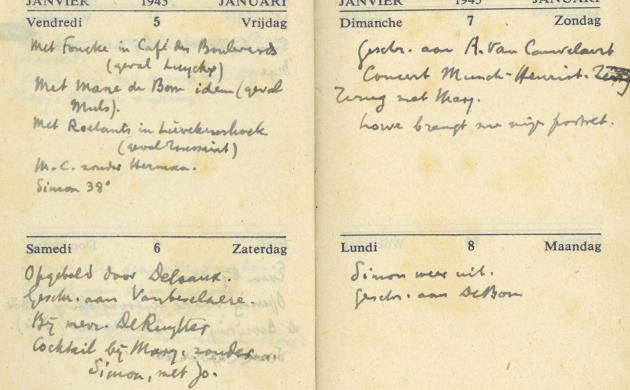 JANVIER 1945 JANUARI
Vendredi 5 Vrijdag
Met Foncke in Café des Boulevards
(geval Luyckx)
Met Marie de Bom idem (geval
Muls).
Met Roelants in Lievekenshoek
(geval Toussaint)
M.C. zonder Herman.
Simon 38°
Samedi 6 Zaterdag
Opgebeld door Delsaux.
Geschr. aan Vanbeselaere.
Bij mevr. De Ruytter
Cocktail bij Marg. zonder
Simon, met Jo.
JANVIER 1945 JANUARI
Dimanche 7 Zondag
Geschr. aan A. Van Cauwelaert
Concert Munch-Henriot.
Terug met Marg.
Lowe brengt me mijn portret.
Lundi 8 Maandag
Simon weer uit.
Geschr. aan De Bom